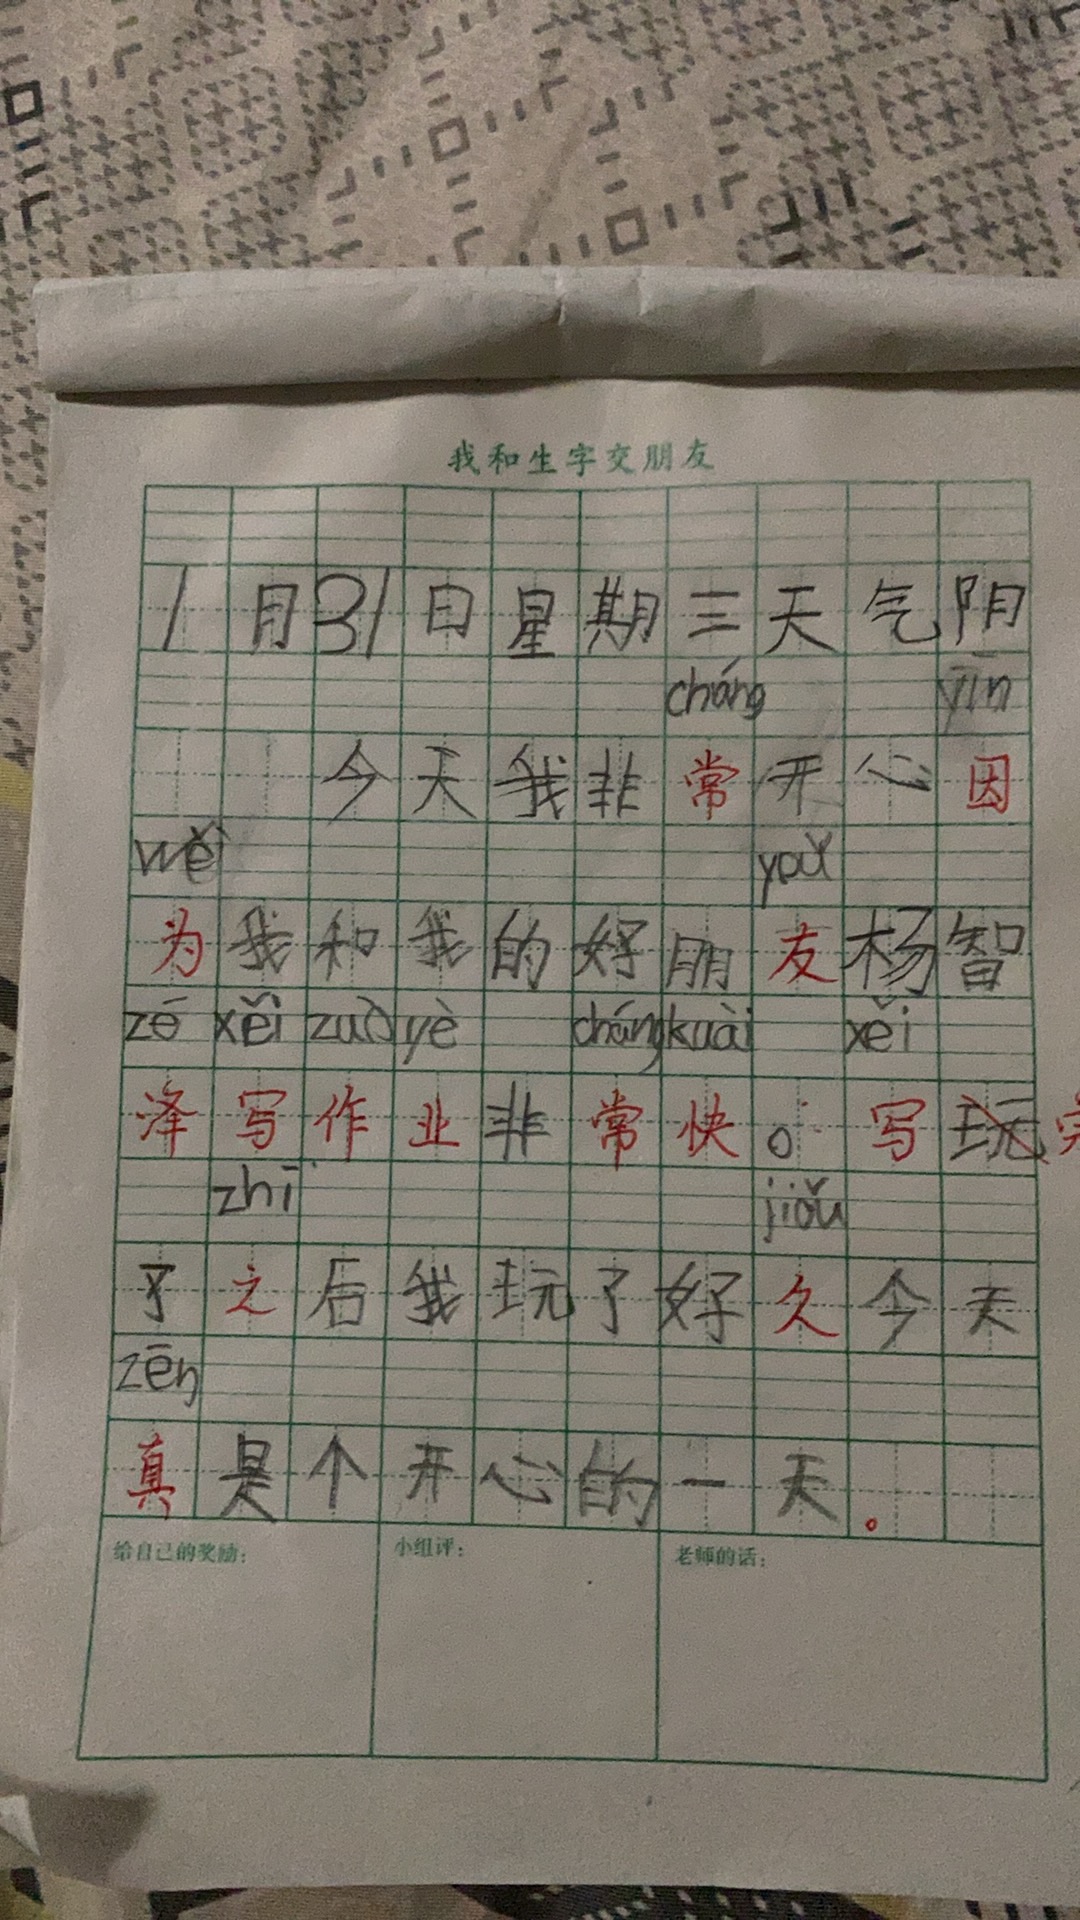 我和生字交朋友
1月31日星期三天气阴
cháng yīn
今天我非常开心因
wèi yoǔ
为我和我的好朋友杨智
zē xěi zuò yè cháng kuài xěi
泽写作业非常快。写玩完
zhī jiǒu
了之后我玩了好久今天
zēn
真是个开心的一天。
给自己的奖励： 小组评： 老师的话：